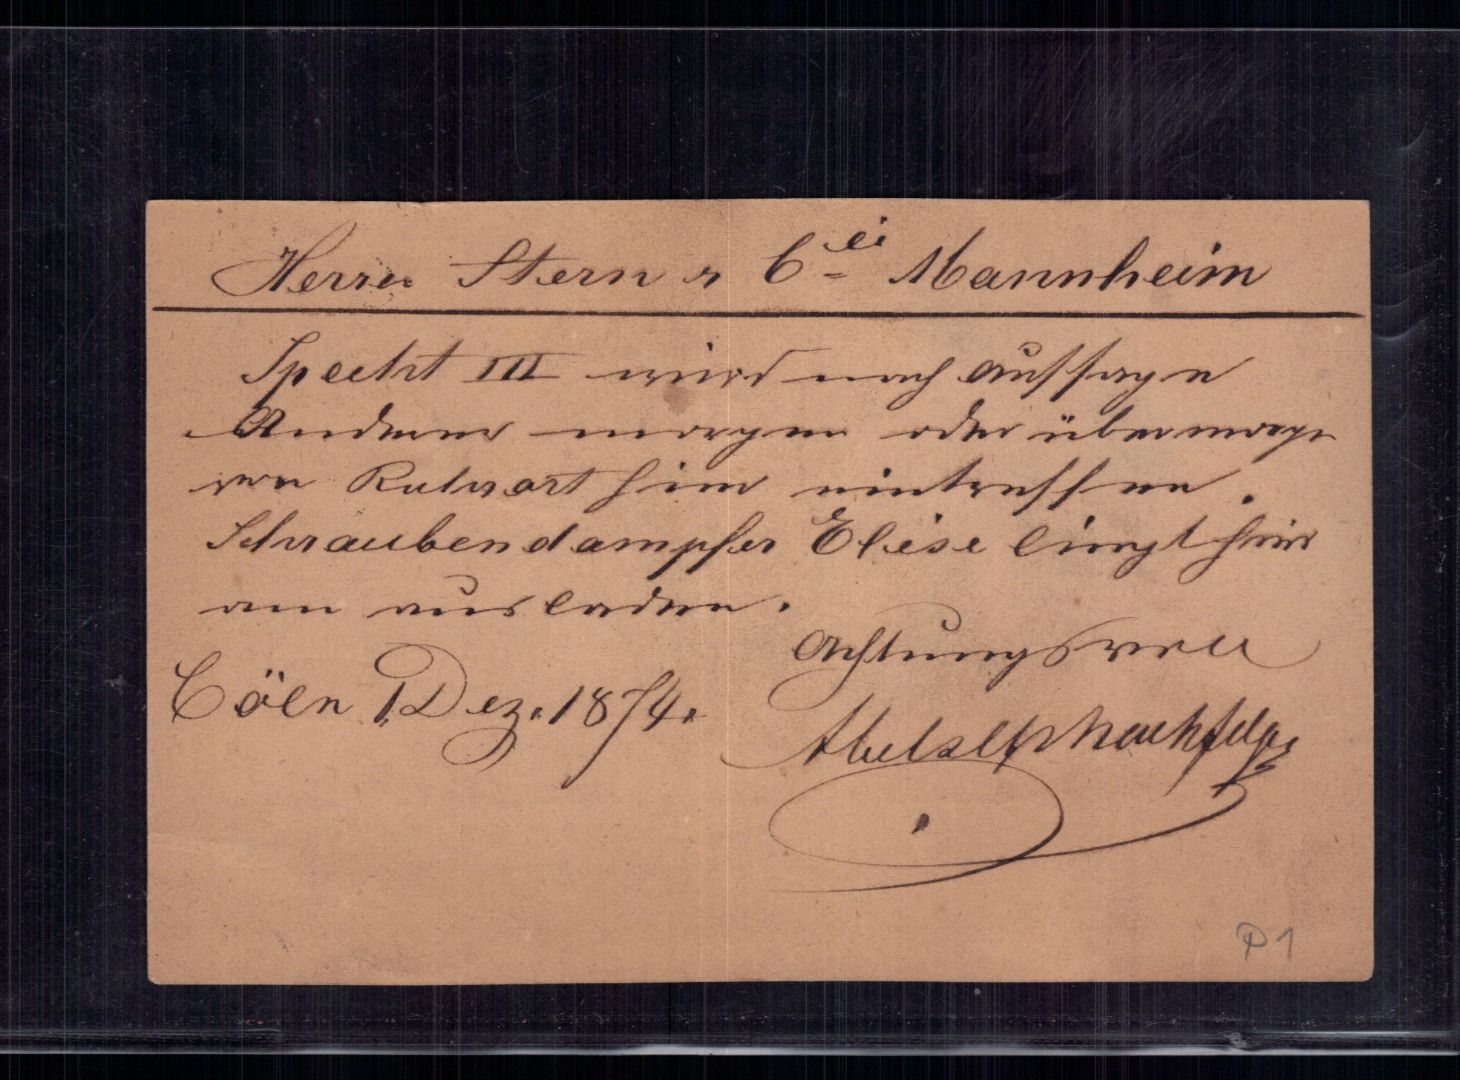 Herren Stern & Cie Mannheim
Specht III wird nach Aussage
Anderer morgen oder übermorge
von Ruhrort hier eintreffen.
Schraubendampfer Elise liegt hier
am ausladen.
Achtungsvoll
Cöln 1 Dez. 1874.
P 1